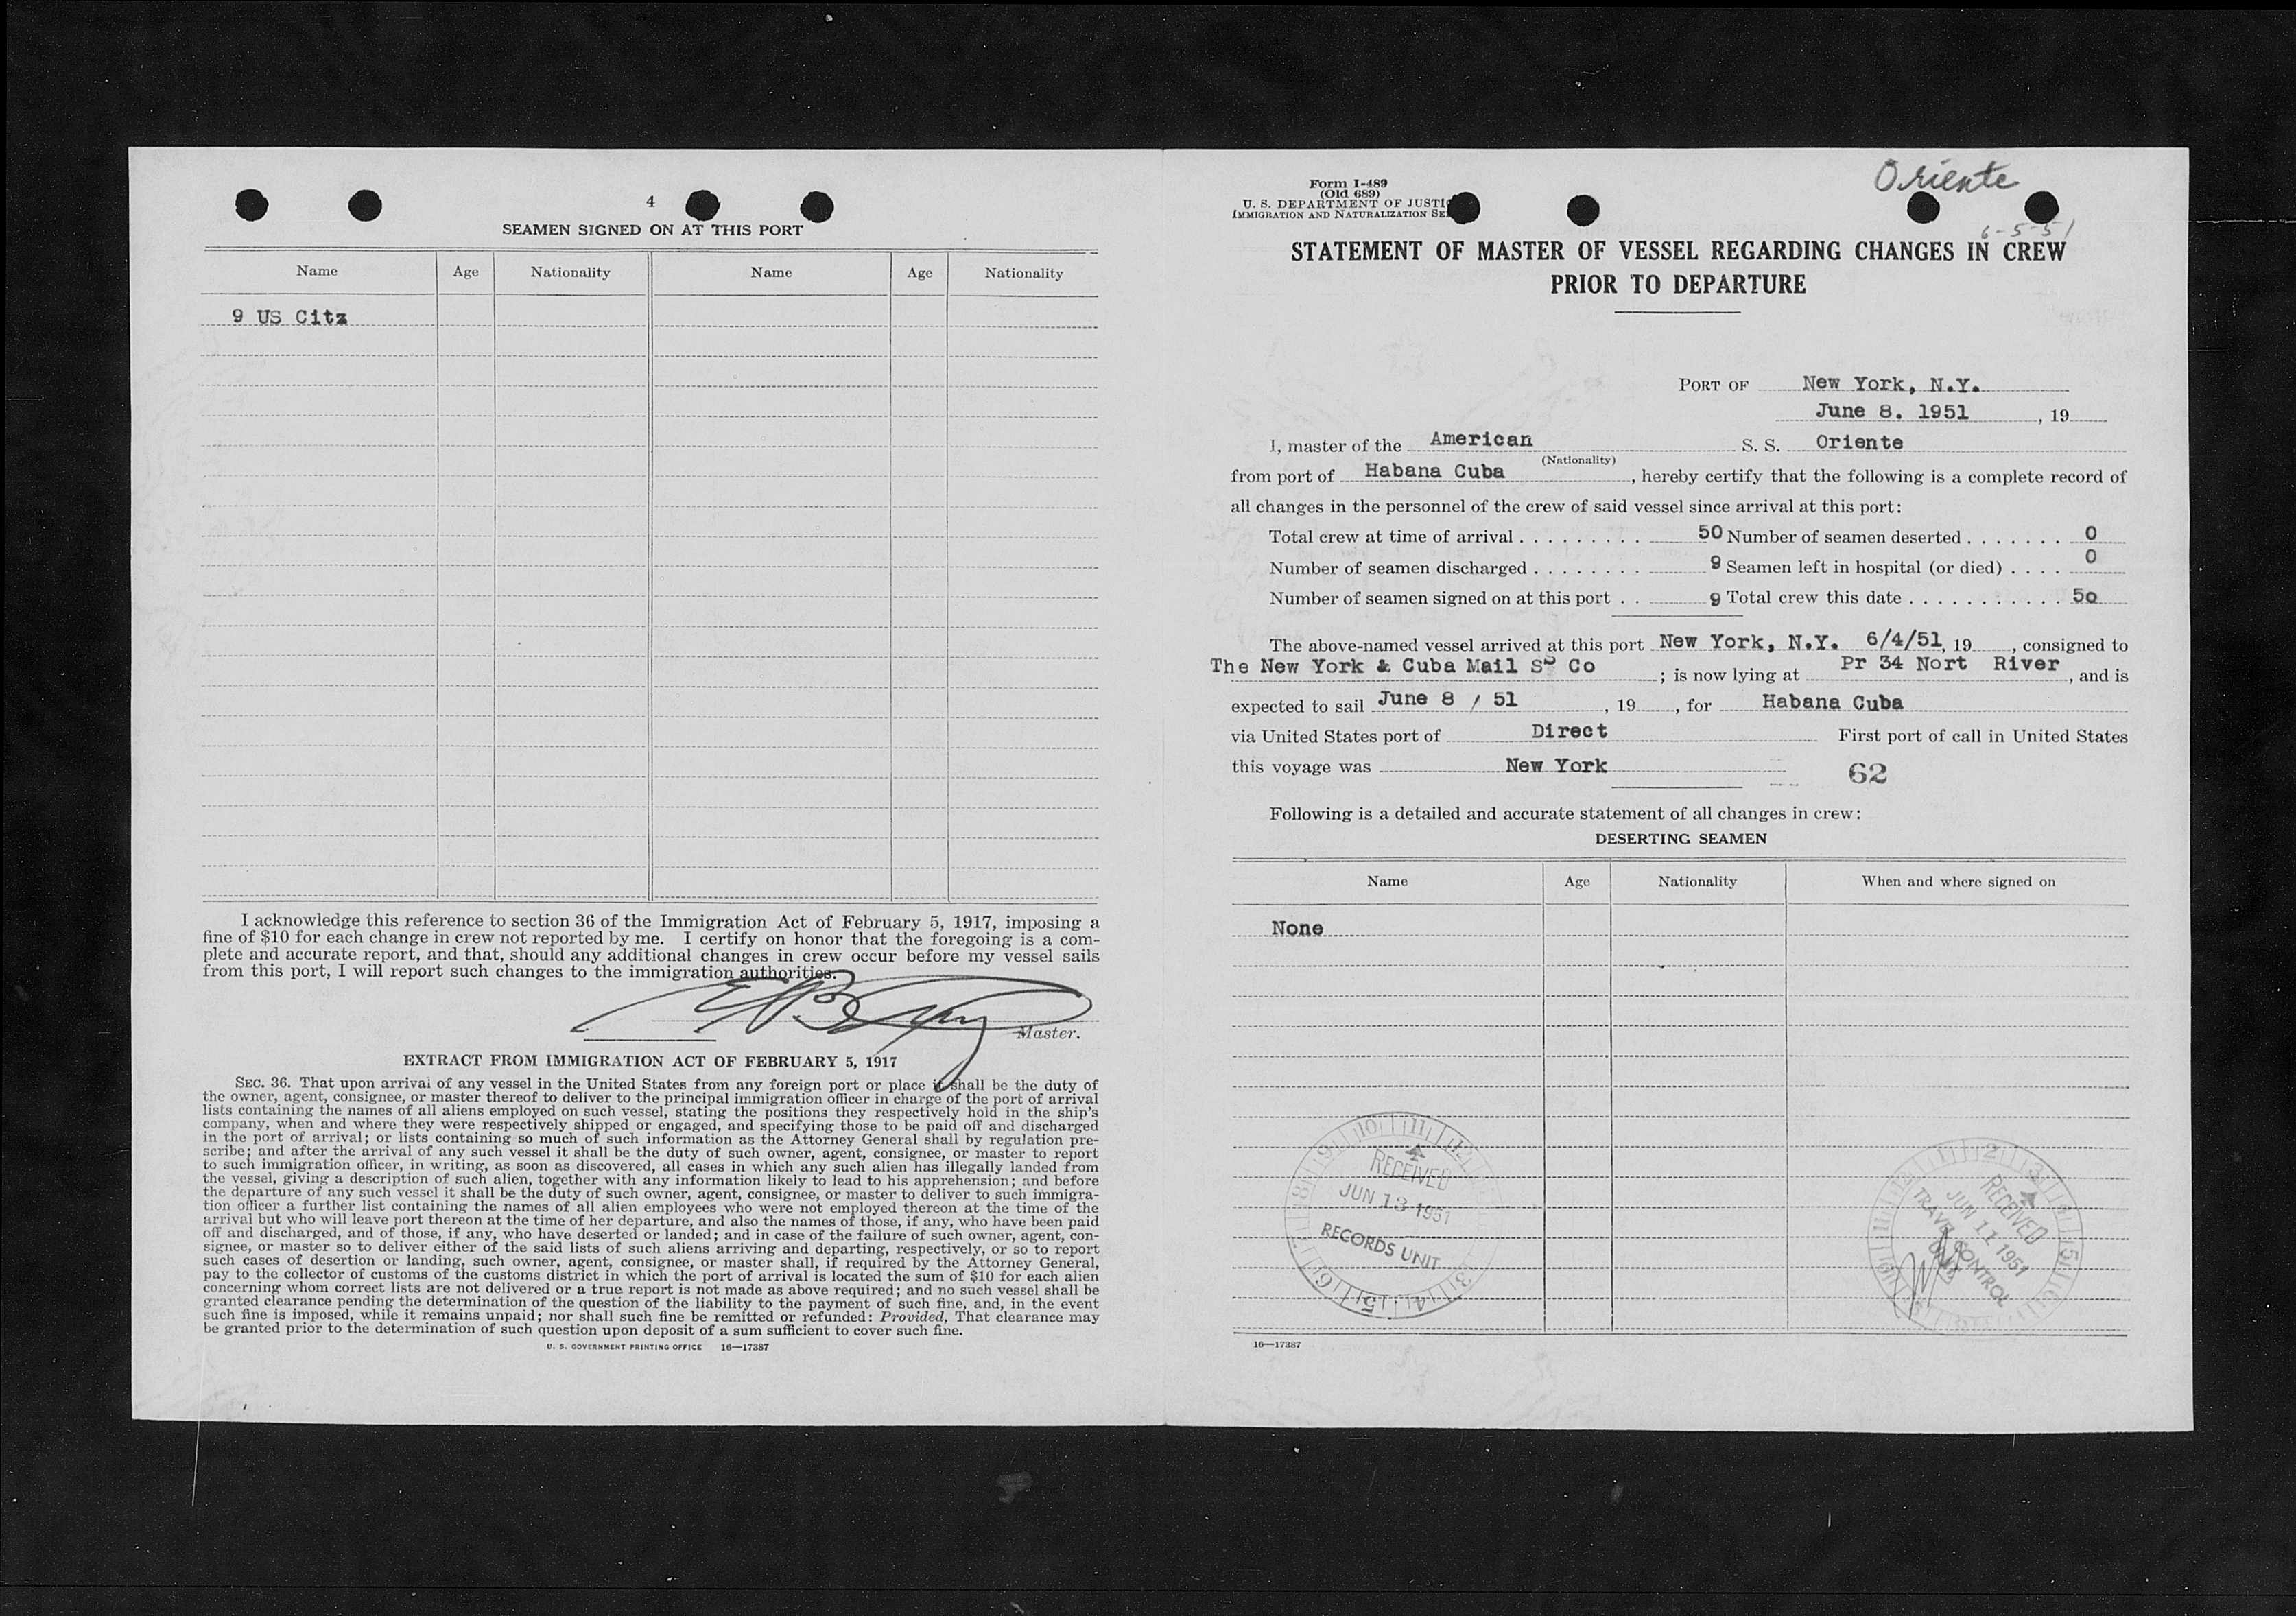 4
SEAMEN SIGNED ON AT THIS PORT
Name Age Nationality Name Age Nationality
9 US Citz
I acknowledge this reference to section 36 of the Immigration Act of February 5, 1917, imposing a
fine of $10 for each change in crew not reported by me. I certify on honor that the foregoing is a com-
plete and accurate report, and that, should any additional changes in crew occur before my vessel sails
from this port, I will report such changes to the immigration authorities.
Master.
EXTRACT FROM IMMIGRATION ACT OF FEBRUARY 5, 1917
SEC. 36. That upon arrival of any vessel in the United States from any foreign port or place it shall be the duty of
the owner, agent, consignee, or master thereof to deliver to the principal immigration officer in charge of the port of arrival
lists containing the names of all aliens employed on such vessel, stating the positions they respectively hold in the ship's
company, when and where they were respectively shipped or engaged, and specifying those to be paid off and discharged
in the port of arrival; or lists containing so much of such information as the Attorney General shall by regulation pre-
scribe; and after the arrival of any such vessel it shall be the duty of such owner, agent, consignee, or master to report
to such immigration officer, in writing, as soon as discovered, all cases in which any such alien has illegally landed from
the vessel, giving a description of such alien, together with any information likely to lead to his apprehension; and before
the departure of any such vessel it shall be the duty of such owner, agent, consignee, or master to deliver to such immigra-
tion officer a further list containing the names of all alien employees who were not employed thereon at the time of the
arrival but who will leave port thereon at the time of her departure, and also the names of those, if any, who have been paid
off and discharged, and of those, if any, who have deserted or landed; and in case of the failure of such owner, agent, con-
signee, or master so to deliver either of the said lists of such aliens arriving and departing, respectively, or so to report
such cases of desertion or landing, such owner, agent, consignee, or master shall, if required by the Attorney General,
pay to the collector of customs of the customs district in which the port of arrival is located the sum of $10 for each alien
concerning whom correct lists are not delivered or a true report is not made as above required; and no such vessel shall be
granted clearance pending the determination of the question of the liability to the payment of such fine, and, in the event
such fine is imposed, while it remains unpaid; nor shall such fine be remitted or refunded: Provided, That clearance may
be granted prior to the determination of such question upon deposit of a sum sufficient to cover such fine.
U. S. GOVERNMENT PRINTING OFFICE 16—17387
Oriente
6-5-51
Form I-489
(Old 689)
U. S. DEPARTMENT OF JUSTIC
IMMIGRATION AND NATURALIZATION SE
STATEMENT OF MASTER OF VESSEL REGARDING CHANGES IN CREW
PRIOR TO DEPARTURE
PORT OF New York, N.Y.
June 8. 1951, 19
I, master of the American S. S. Oriente
(Nationality)
from port of Habana Cuba, hereby certify that the following is a complete record of
all changes in the personnel of the crew of said vessel since arrival at this port:
Total crew at time of arrival . . . . . . . . . 50 Number of seamen deserted . . . . . . . 0
Number of seamen discharged . . . . . . . . 9 Seamen left in hospital (or died) . . . . 0
Number of seamen signed on at this port . . 9 Total crew this date . . . . . . . . . . . 50
The above-named vessel arrived at this port New York, N.Y. 6/4/51, 19, consigned to
The New York & Cuba Mail SS Co; is now lying at Pr 34 Nort River, and is
expected to sail June 8 / 51, 19, for Habana Cuba
via United States port of Direct First port of call in United States
this voyage was New York 62
Following is a detailed and accurate statement of all changes in crew:
DESERTING SEAMEN
Name Age Nationality When and where signed on
None
RECEIVED
JUN 13 1951
RECORDS UNIT
RECEIVED
JUN 11 1951
TRAVEL CONTROL
UNIT
16—17387